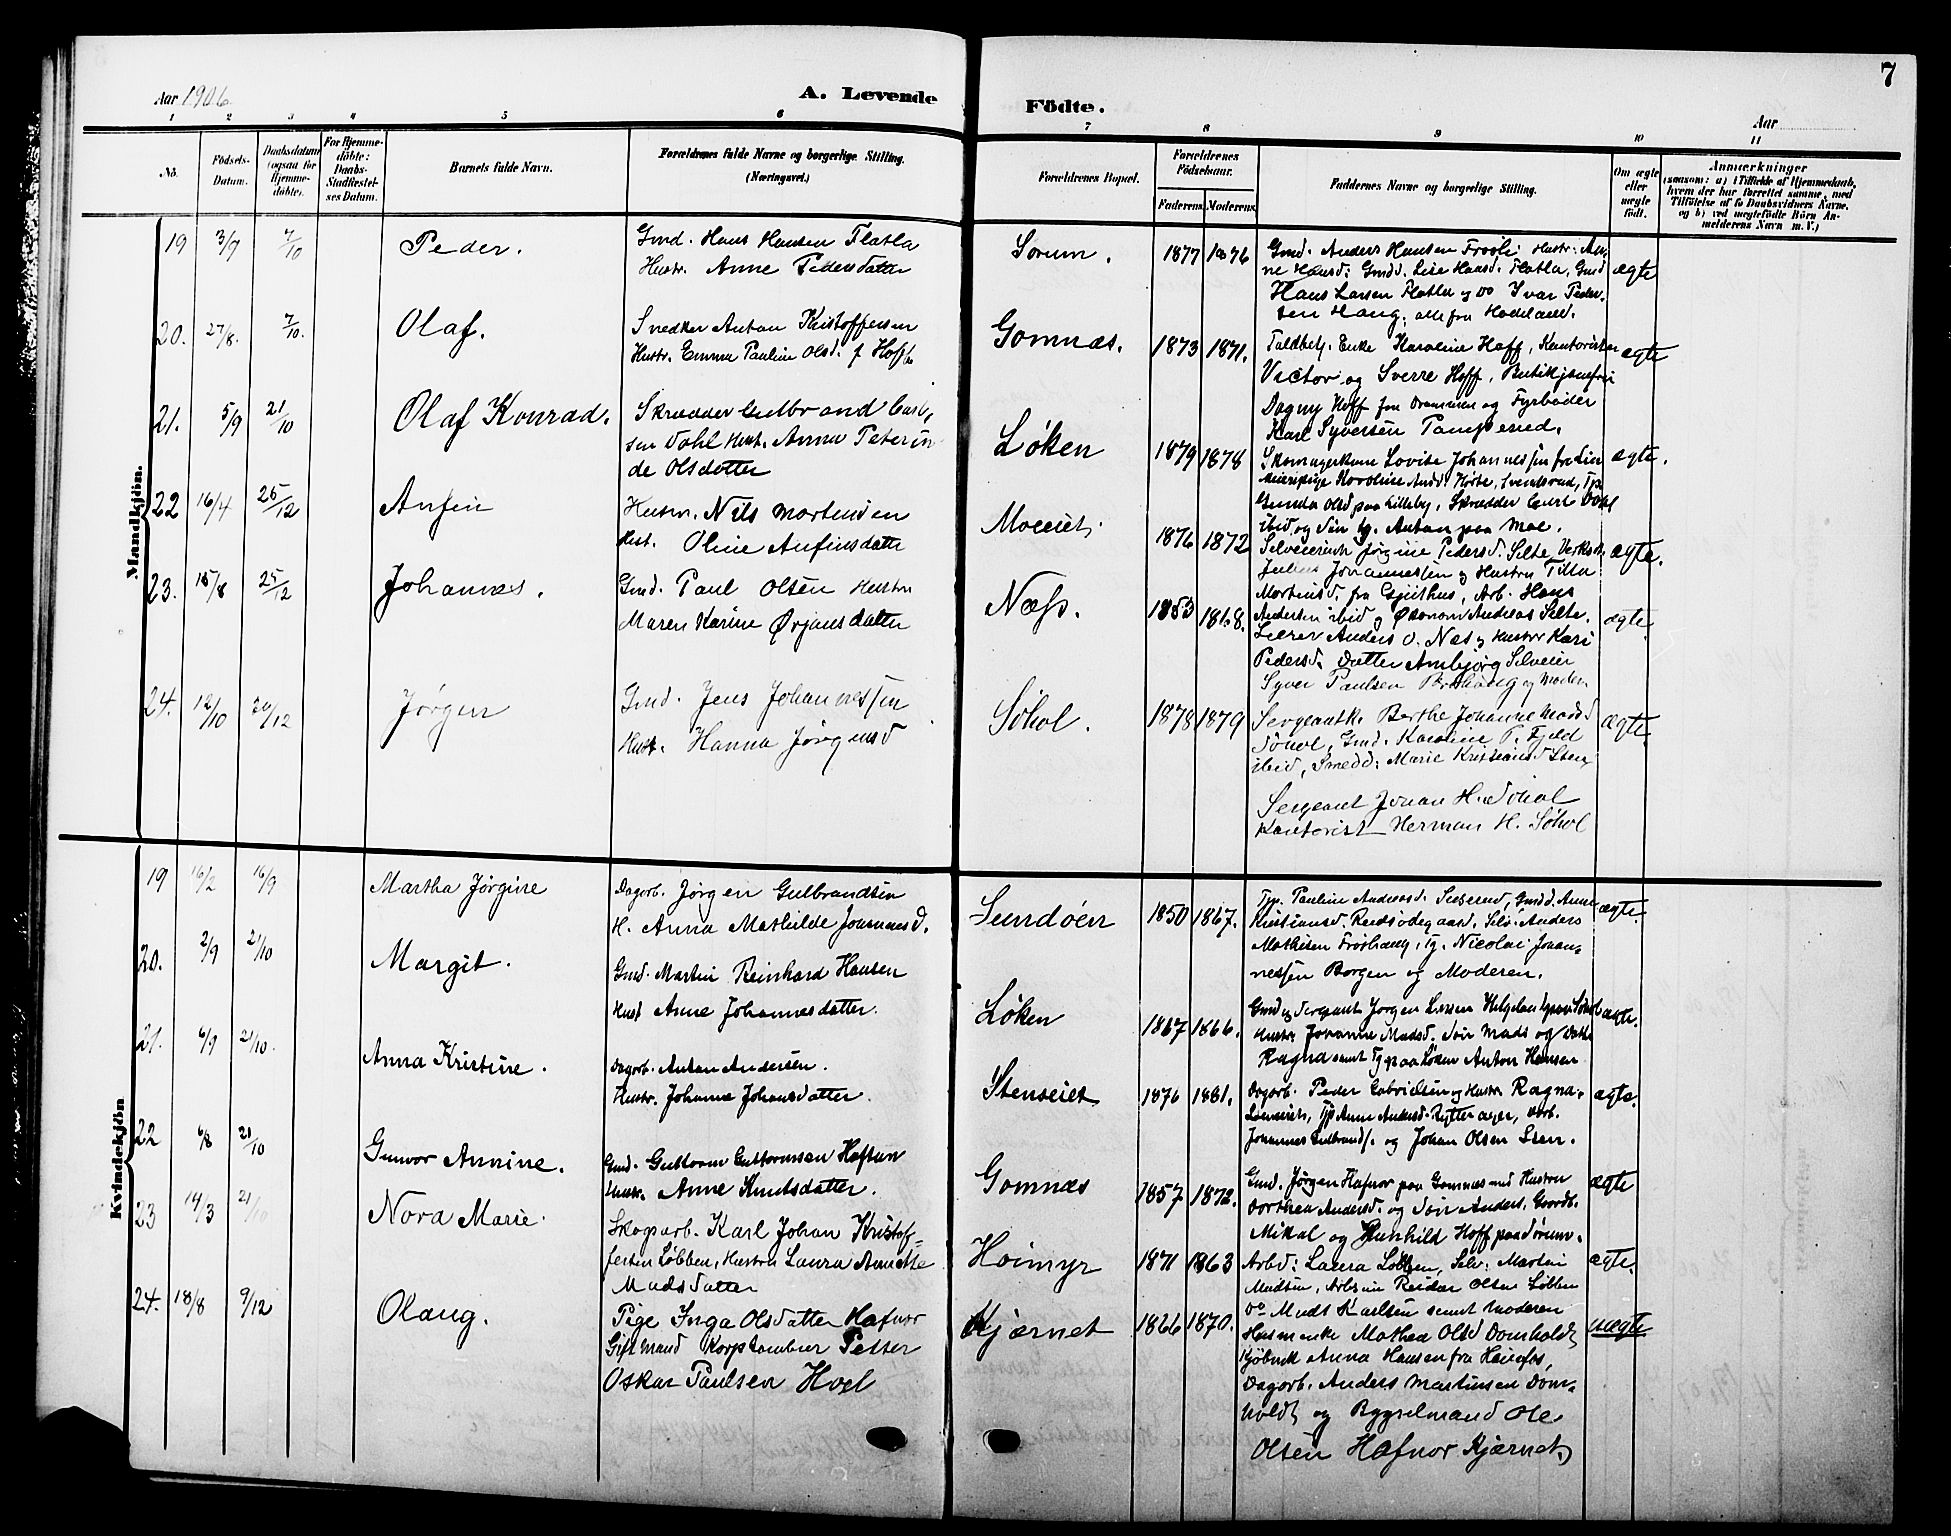 7
Aar 1906
A. Levende
Födte.
Aar
1 2 3 4 5 6 7 8 9 10 11
No.
Födsels-
Datum.
Daabsdatum
(ogsaa for
Hjemme-
döbte).
For Hjemme-
döbte:
Daabs-
Stadfæstel-
ses Datum.
Barnets fulde Navn.
Forældrenes fulde Navne og borgerlige Stilling.
(Næringsvei.)
Forældrenes Bopæl.
Forældrenes
Födselsaar.
Faderens Moderens
Faddernes Navne og borgerlige Stilling.
Om ægte
eller
uægte
födt.
Anmærkninger
(saasom: a) i Tilfælde af Hjemmedaab,
hvem der har forrettet samme, med
Tilföielse af to Daabsvidners Navne,
og b) ved uægtefödte Börn An-
melderens Navn m. V.)
Mandkjön.
19 3/9 7/10 Peder.
Gmd. Hans Hansen Flatla
Hustr. Anne Pedersdatter
Sørum. 1877 1876
Gmd. Anders Hansen Hustr: An-
ne Hansd: Gmdd. Lise Hansd. Flatla, Gmd
Hans Larsen Flatla og do Ivar Peder-
sen Haug, alle fra Hadeland.
ægte
20. 27/8. 7/10. Olaf.
Snedker Anton Kristoffersen
Hustr. Emma Pauline Olsd. f Hoff
Gomnæs. 1873 1871.
Enke Karoline Hoff, Kontorister
Victor og Sverre Hoff,
Dagny Hoff fra Drammen og Fyrbøder
Karl Syversen
ægte
21. 5/9 21/10 Olaf Konrad.
Skrædder Gulbrand Carl-
sen Dahl Hust. Anna Peterin-
de Olsdatter
Løken 1879 1878
Skomagerkone Lovise Johannessen fra Lier
Karoline And.
Olsd paa Lilleby, Skrædder Carl Dahl
ibid og Søn tg. Anton paa Moe.
ægte.
22 16/4 25/12 Anfin
Husm. Nils Mortensen
Hust. Oline Anfinsdatter
Moeeiet. 1876 1872
Jørgine Pedersd. Selte
Julius Johannessen og Hustru Tilla
Mortensd. fra Gjeithus, Arb. Hans
Andersen ibid og Økonom Andreas Selte.
ægte.
23. 15/8 25/12 Johannes.
Gmd. Paul Olsen Hustru
Maren Karine Ørjansdatter
Næss. 1853 1868.
Lærer Anders O. Næs og Hustru Kari
Pedersd. Datter Ambjørg Selveier
Syver Paulsen og Moder.
ægte
24. 12/10 26/12 Jørgen
Gmd. Jens Johannessen
Hust. Hanna Jørgensd
Søhol. 1878 1879
Sergeantk. Berthe Johanne Madsd
Søhol, Gmd. Karoline P. Fjeld
ibid, Smedd: Marie Kristiansd Sten
Sergeant Johan H. Søhol
Kontorist Herman H. Søhol
ægte.
Kvindekjön
19 16/2 16/9 Martha Jørgine
Dagarb. Jørgen Gulbrandsen
H. Anna Mathilde Johannesd.
Sundøen 1850 1867.
Tjp. Pauline Andersd. Gmdd. Anne
Kristiansd. Selv. Anders
Mathisen Frøshaug, tg. Nicolai Johan-
nessen Borgen og Moderen.
ægte.
20. 2/9 21/10 Margit.
Gmd. Martin Reinhard Hansen
Hust Anne Johannesdatter.
Løken 1867 1866.
Gmd og Sergeant Jørgen Larsen Helgeland paa Søhol
Hustr Johanne Madsd. Søn Mads og Datter
Ragna samt tg paa Løken Anton Hansen
ægte.
21. 6/9 21/10. Anna Kristine.
Dagarb. Anton Andersen.
Hustr. Johanne Johansdatter.
Steneiet 1876 1881.
Dagarb. Peder Gabrielsen og Hustr. Ragna
Tjp Anne Andersd. Rytterager,
Johannes Gulbrands. og Johan Olsen Sten.
ægte.
22 6/8 21/10 Gunvor Annine.
Gmd. Guttorm Guttormsen Haftun
Hustr. Anne Knutsdatter.
Gomnæs 1857 1872.
Gmd. Jørgen Hafnor paa Gomnæs med Hustru
Dorthea Andersd. og Søn Anders, Gaardb.
Mikal og Gunhild Hoff paa Sørum.
ægte
23 14/3 21/10 Nora Marie.
Skogsarb. Karl Johan Kristof-
fersen Løbben, Hustru Laura Annette
Madsdatter
Høimyr 1871 1863
Arbd: Laura Løbben, Selv: Martin
Madsen, Reidar Olsen Løbben
do Mads Karlsen samt Moderen
ægte.
24. 18/8 9/12 Olaug.
Pige Inga Olsdatter Hafnor
Gift Mand Korptambur Petter
Oskar Paulsen Hoel
Kjærnet 1866 1870.
Husm.enke Mathea Olsd Domholdt
Anna Hansen fra Hønefos,
Dagarb. Anders Martinsen Dom-
holdt og Bygselmand Ole
Olsen Hafnor Kjærnet.
uægte